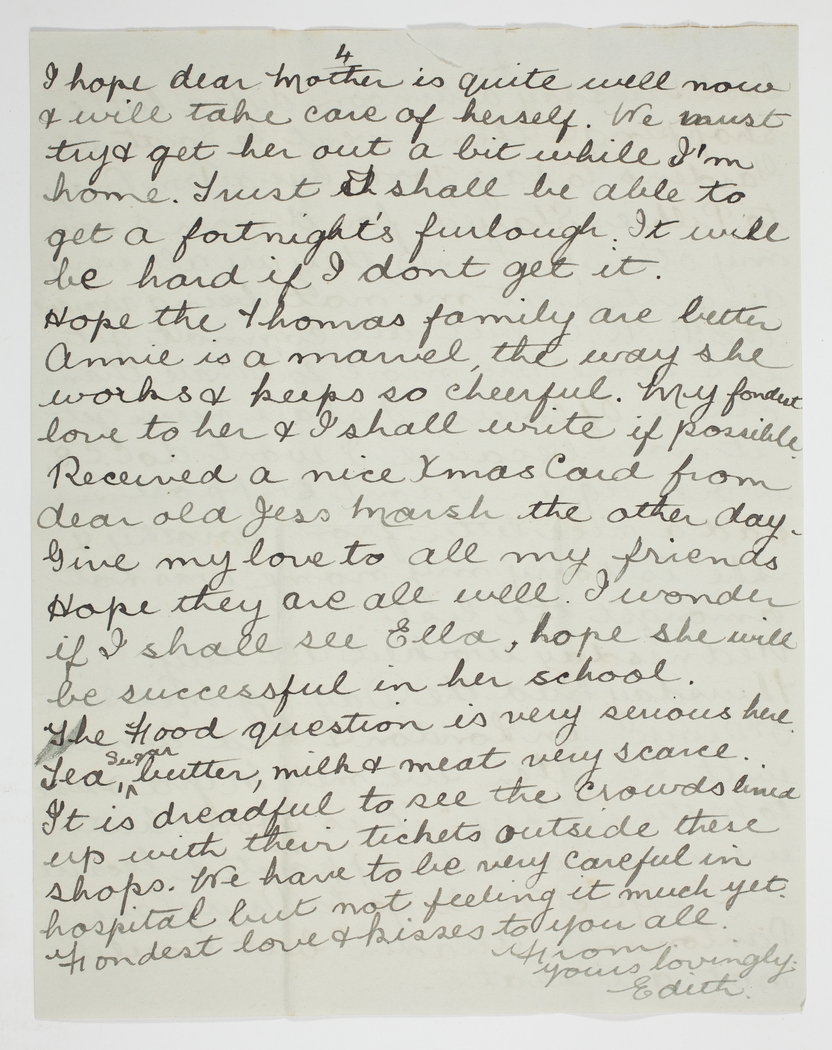 4
I hope dear Mother is quite well now
& will take care of herself. We must
try & get her out a bit while I'm
home. Trust I shall be able to
get a fortnight's furlough. It will
be hard if I dont get it.
Hope the Thomas family are better
Annie is a marvel, the way she
works & keeps so cheerful. My fondest
love to her & I shall write if possible.
Received a nice Xmas Card from
dear old Jess Marsh the other day.
Give my love to all my friends
Hope they are all well. I wonder
if I shall see Ella, hope she will
be successful in her school.
The Food question is very serious here.
Tea, Sugar butter, milk & meat very scarce.
It is dreadful to see the crowds lined
up with their tickets outside these
shops. We have to be very careful in
hospital but not feeling it much yet.
Fondest love & kisses to you all.
From
yours lovingly.
Edith.